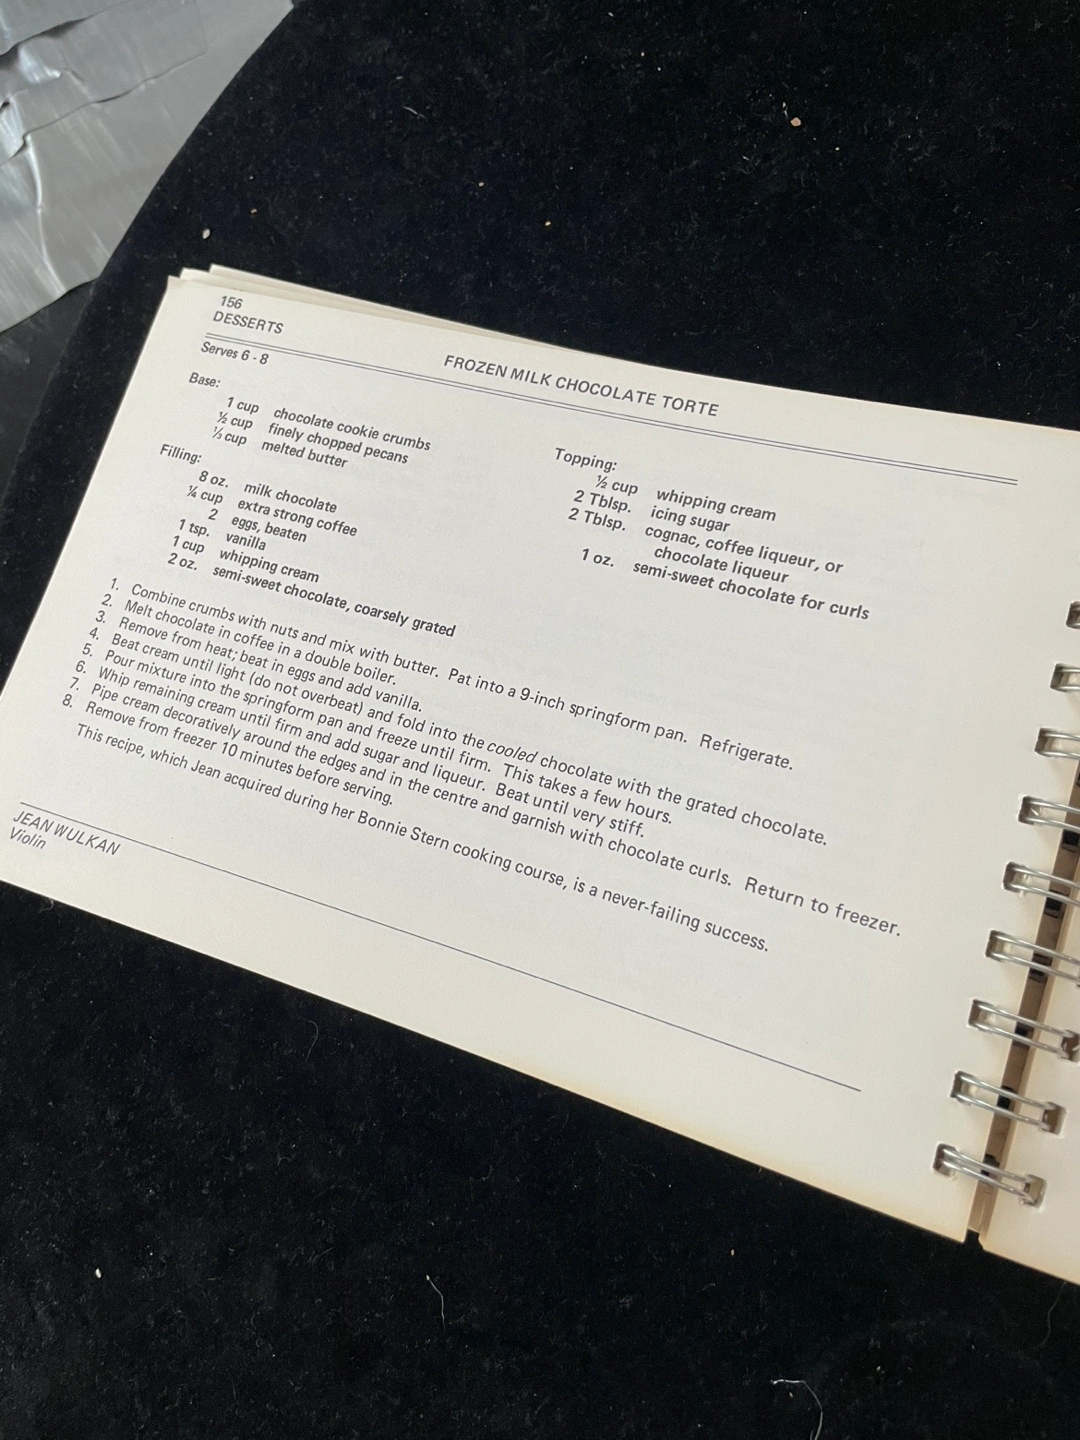 156
DESSERTS
FROZEN MILK CHOCOLATE TORTE
Serves 6 - 8
Base:
1 cup chocolate cookie crumbs
½ cup finely chopped pecans
⅓ cup melted butter
Filling:
8 oz. milk chocolate
¼ cup extra strong coffee
2 eggs, beaten
1 tsp. vanilla
1 cup whipping cream
2 oz. semi-sweet chocolate, coarsely grated
Topping:
½ cup whipping cream
2 Tblsp. icing sugar
2 Tblsp. cognac, coffee liqueur, or
chocolate liqueur
1 oz. semi-sweet chocolate for curls
1. Combine crumbs with nuts and mix with butter. Pat into a 9-inch springform pan. Refrigerate.
2. Melt chocolate in coffee in a double boiler.
3. Remove from heat; beat in eggs and add vanilla.
4. Beat cream until light (do not overbeat) and fold into the cooled chocolate with the grated chocolate.
5. Pour mixture into the springform pan and freeze until firm. This takes a few hours.
6. Whip remaining cream until firm and add sugar and liqueur. Beat until very stiff.
7. Pipe cream decoratively around the edges and in the centre and garnish with chocolate curls. Return to freezer.
8. Remove from freezer 10 minutes before serving.
This recipe, which Jean acquired during her Bonnie Stern cooking course, is a never-failing success.
JEAN WULKAN
Violin